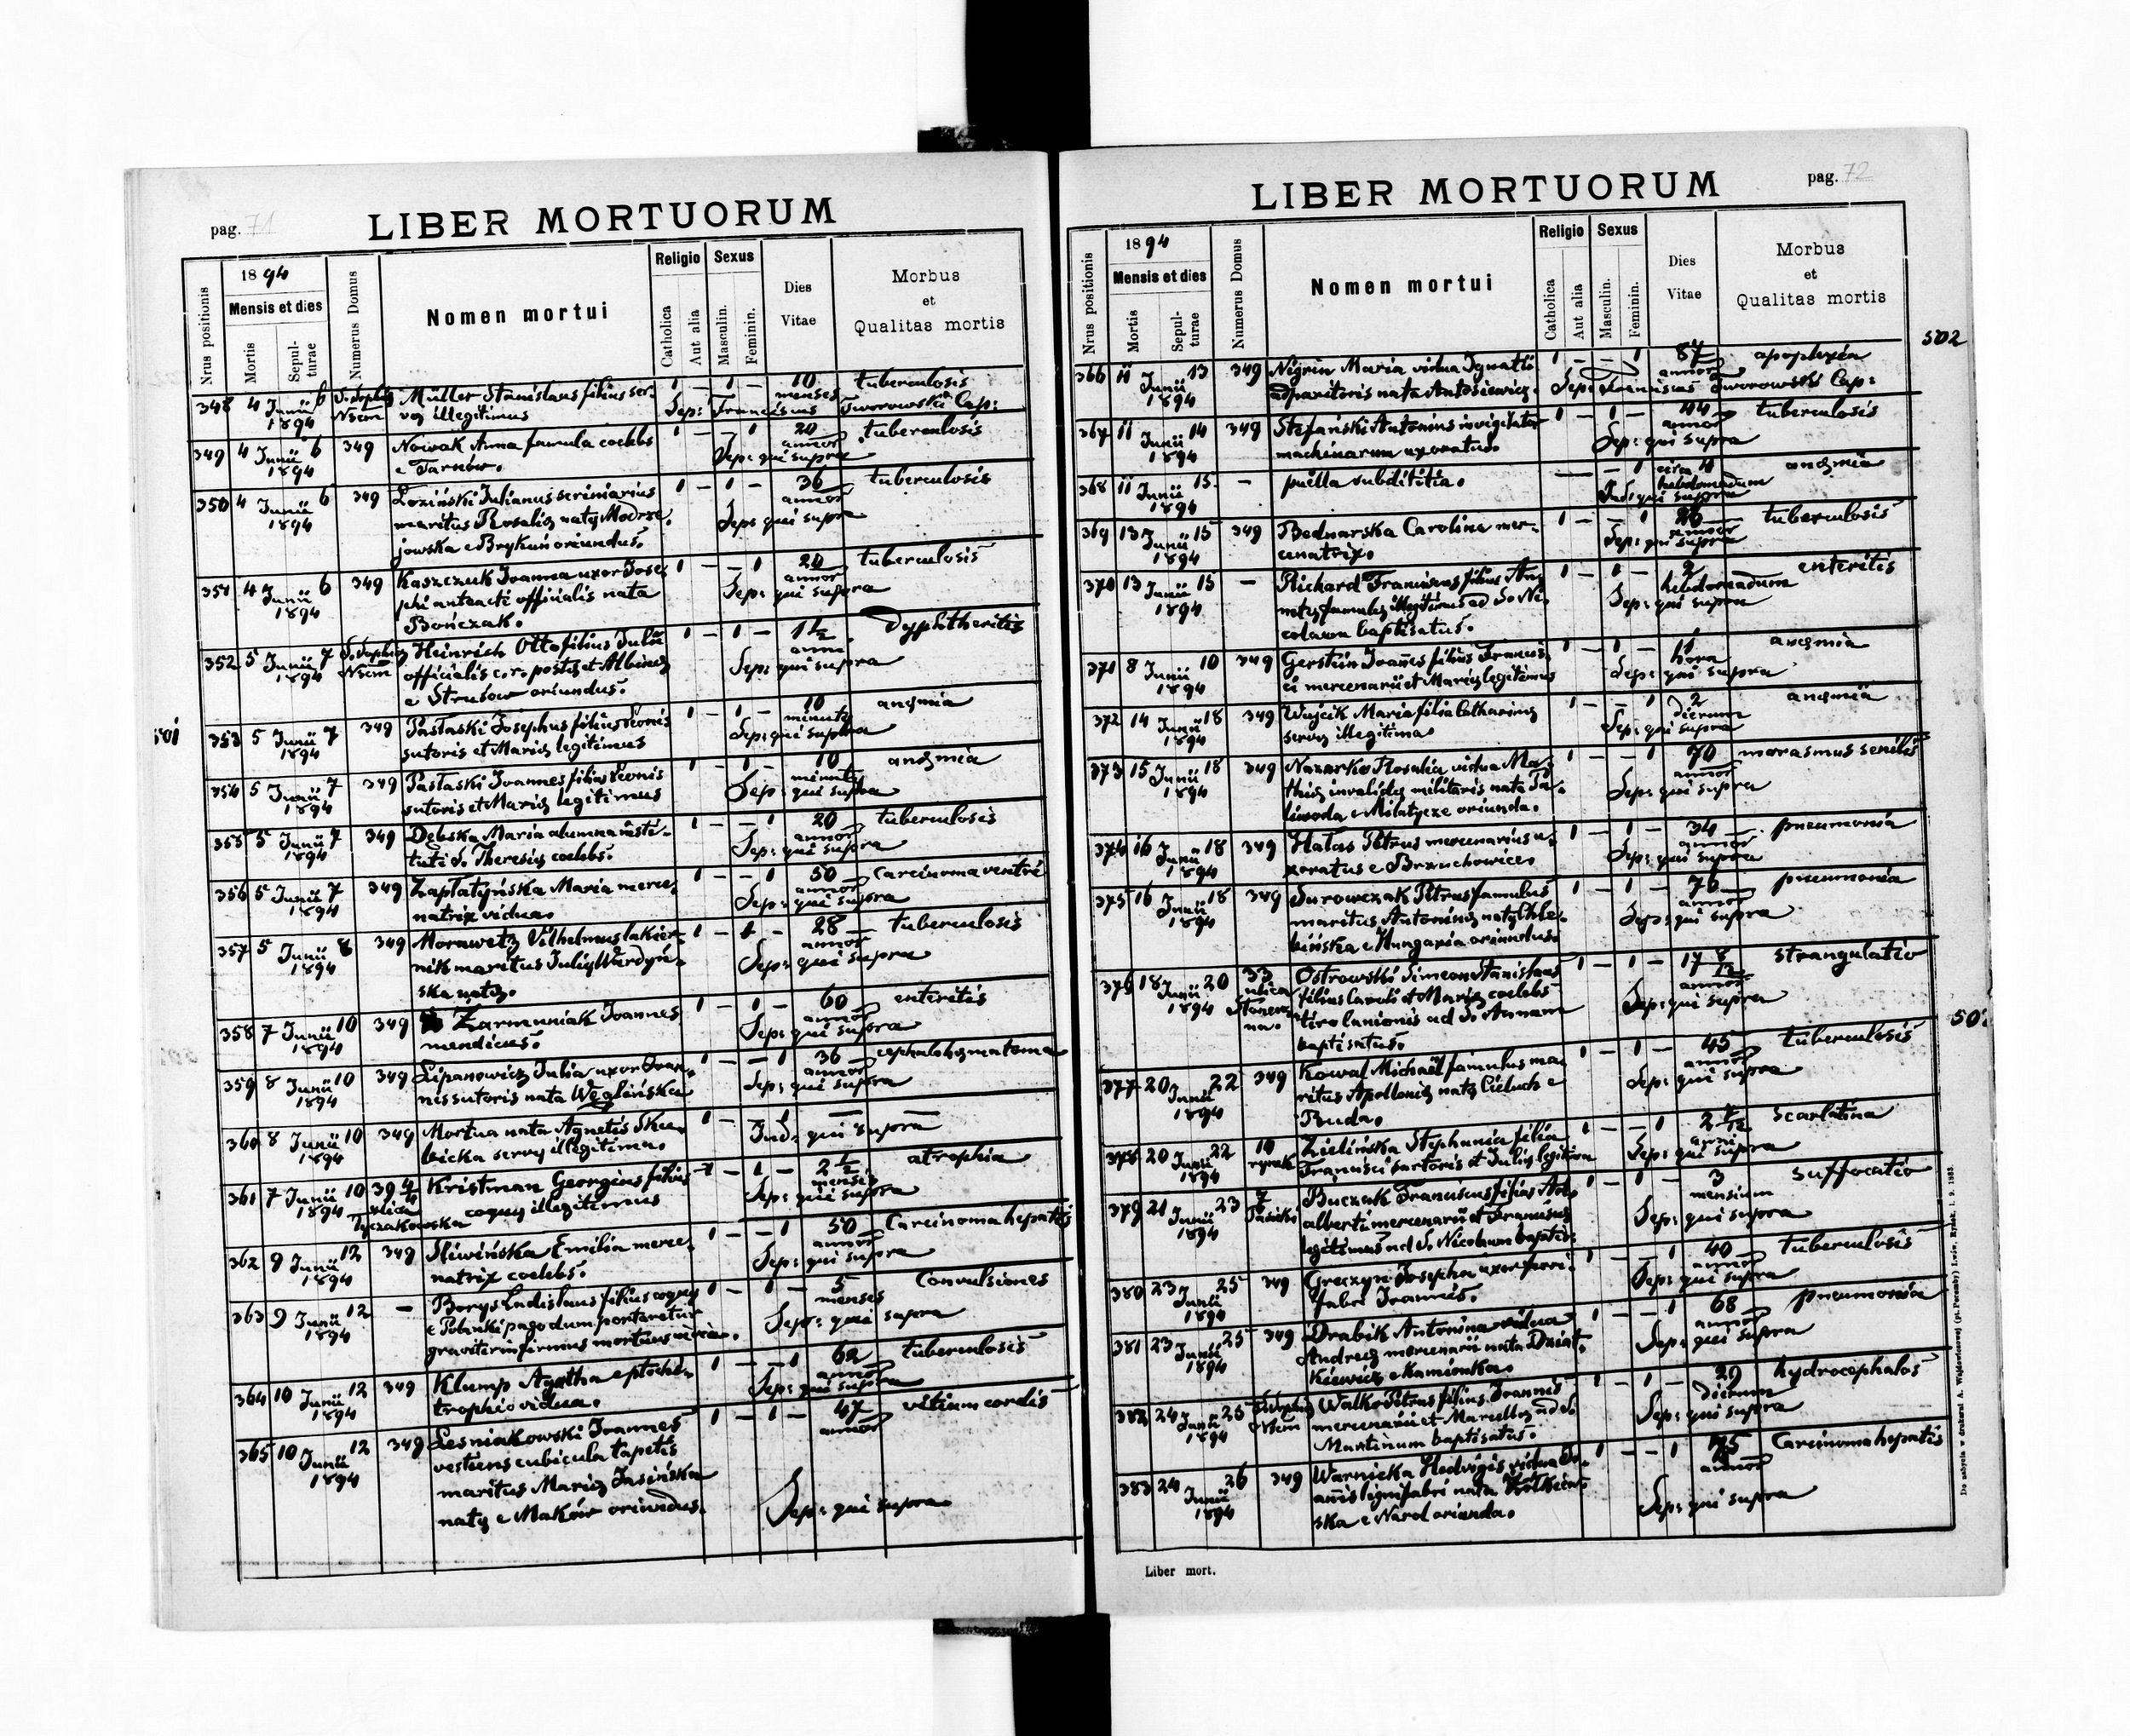 pag. 71
LIBER MORTUORUM
Nrus positionis
1894
Mensis et dies
Mortis
Sepul-
turae
Numerus Domus
Nomen mortui
Religio
Catholica
Aut alia
Sexus
Masculin.
Feminin.
Dies
Vitae
Morbus
et
Qualitas mortis
348 4 Junii 6 1894 Müller Stanislaus filius ser- 1 – 1 – 10 menses tuberculosis
vę illegitimus Sep: Franciscus Tworowski Cap:
349 4 Junii 6 1894 349 Nowak Anna famula coelebs 1 – – 1 20 annor tuberculosis
e Tarnów. Sep: qui supra
350 4 Junii 6 1894 349 Loziński Julianus scriniarius 1 – 1 – 36 annor tuberculosis
maritus Rosalię natę Modrze
jowska e Brykuń oriundus. Sep: qui supra
351 4 Junii 6 1894 349 Kaszczuk Joanna uxor Jose 1 – – 1 24 annor tuberculosis
phi anteacti officialis nata Sep: qui supra
Bończak.
352 5 Junii 7 1894 Heinrich Otto filius Julii 1 – 1 – 1½ anni dyphtheritis
officialis c. r. postę et Albinę Sep: qui supra
e Strusow oriundus.
353 5 Junii 7 1894 349 Pastaski Josephus filius Leonis 1 – 1 – 10 minuta anęmia
sutoris et Marię legitimus Sep: qui supra
354 5 Junii 7 1894 349 Pastaski Joannes filius Leonis 1 – 1 – 10 minuta anęmia
sutoris et Marię legitimus Sep: qui supra
355 5 Junii 7 1894 349 Debska Maria alumna insti- 1 – – 1 20 annor tuberculosis
tuti S. Theresię coelebs. Sep: qui supra
356 5 Junii 7 1894 349 Zapłatyńska Maria merce- 1 – – 1 50 annor carcinoma ventri
natrix vidua. Sep: qui supra
357 5 Junii 8 1894 349 Morawetz Vilhelmus lakier- 1 – 1 – 28 annor tuberculosis
nik maritus Julię Wardyń- Sep: qui supra
ska natę.
358 7 Junii 10 1894 349 Zarmuniak Joannes 1 – 1 – 60 annor enteritis
mendicus. Sep: qui supra
359 8 Junii 10 1894 349 Lipanowicz Julia uxor Joan- 1 – – 1 36 annor
nis sutoris nata Weglińska Sep: qui supra
360 8 Junii 10 1894 349 Mortua nata Agnetis Sku- 1 – – 1 – –
bicka servę illegitima. Ind: qui supra
361 7 Junii 10 1894 39 4/4 ulica Kristman Georgius filius 1 – 1 – 2½ mensis atrophia
Łyczakowska coquę illegitimus Sep: qui supra
362 9 Junii 12 1894 349 Sliwińska Emilia merce- 1 – – 1 50 annor Carcinoma hepatis
natrix coelebs. Sep: qui supra
363 9 Junii 12 1894 – Borys Ladislaus filius coquę 1 – 1 – 5 menses Convulsiones
e pago dum portaretur Sep: qui supra
graviter infirmus mortuus in via.
364 10 Junii 12 1894 349 Klump Agatha e ptocho- 1 – – 1 62 annor tuberculosis
trophio vidua. Sep: qui supra
365 10 Junii 12 1894 349 Lesniakowski Joannes 1 – 1 – 47 annor vitium cordis
vestiens cubicula tapetis
maritus Marię Jasińska
natę e Maków oriundus. Sep: qui supra
501
pag. 72
LIBER MORTUORUM
Nrus positionis
1894
Mensis et dies
Mortis
Sepul-
turae
Numerus Domus
Nomen mortui
Religio
Catholica
Aut alia
Sexus
Masculin.
Feminin.
Dies
Vitae
Morbus
et
Qualitas mortis
502
366 11 Junii 13 1894 349 Nigrin Maria vidua Ignatii 1 – – 1 87 annor apoplexia
adparitoris nata Antosiewicz. Sep: Franciscus Tworowski Cap:
367 11 Junii 14 1894 349 Stefański Antonius invigilator 1 – 1 – 44 annor tuberculosis
machinarum uxoratus. Sep: qui supra
368 11 Junii 15 1894 – puella subdititia. – – 1 circa 4 hebdomadum anęmia
Ind: qui supra
369 13 Junii 15 1894 349 Bednarska Carolina mer- 1 – – 1 26 annor tuberculosis
cenatrix. Sep: qui supra
370 13 Junii 15 1894 – Richard Franciscus filius An- 1 – 1 – 2 hebdomadum enteritis
netę famulę illegitimus ad S. Ni- Sep: qui supra
colaum baptisatus.
371 8 Junii 10 1894 349 Gerstün Joanes filius Francis- 1 – 1 – 11 hora anęmia
ci mercenarii et Marię legitimus Sep: qui supra
372 14 Junii 18 1894 349 Wujcik Maria filia Catharinę 1 – – 1 2 dierum anęmia
servę illegitima Sep: qui supra
373 15 Junii 18 1894 349 Nazarko Rosalia vidua Ma- 1 – – 1 70 annor marasmus senilis
thię invalidę militaris nata Pa- Sep: qui supra
liwoda e Milatycze oriunda.
374 16 Junii 18 1894 349 Hałas Petrus mercenarius u- 1 – 1 – 34 annor pneumonia
xoratus e Brzuchowice. Sep: qui supra
375 16 Junii 18 1894 349 Surowczak Petrus famulus 1 – 1 – 76 annor pneumonia
maritus Antoninę natę Chle- Sep: qui supra
bińska e Hungaria oriundus.
376 18 Junii 20 1894 33 ulica Ostrowski Simeon Stanislaus 1 – 1 – 17 8/12 annor strangulatio
filius Caroli et Marię coelebs Sep: qui supra
tiro lanionis ad S. Annam
baptisatus.
502
377 20 Junii 22 1894 349 Kowal Michaël famulus ma- 1 – 1 – 45 annor tuberculosis
ritus Apollonię natę Cieluch e Sep: qui supra
Ruda.
378 20 Junii 22 1894 10 rynek Zielińska Stephania filia 1 – – 1 2 anni scarlatina
Francisci sartoris et Julię legitima Sep: qui supra
379 21 Junii 23 1894 7 Pasieki Buczak Franciscus filius Ad- 1 – 1 – 3 mensium suffocatio
alberti mercenarii et Franciscę Sep: qui supra
legitimus ad S. Nicolaum baptis.
380 23 Junii 25 1894 349 Greczyn Josepha uxor fori- 1 – – 1 40 annor tuberculosis
fabri Joannis. Sep: qui supra
381 23 Junii 25 1894 349 Drabik Antonina vidua 1 – – 1 68 annor pneumonia
Andreę mercenarii nata Dziat- Sep: qui supra
kiewicz e Kamionka.
382 24 Junii 25 1894 Walko Petrus filius Joannis 1 – 1 – 29 dierum hydrocephalos
mercenarii et Marcellę ad S. Sep: qui supra
Martinum baptisatus.
383 24 Junii 26 1894 349 Warnicka Hedvigis vidua Jo- 1 – – 1 annor Carcinoma hepatis
anis lignifabri nata
ska e Narol oriunda. Sep: qui supra
Liber mort.